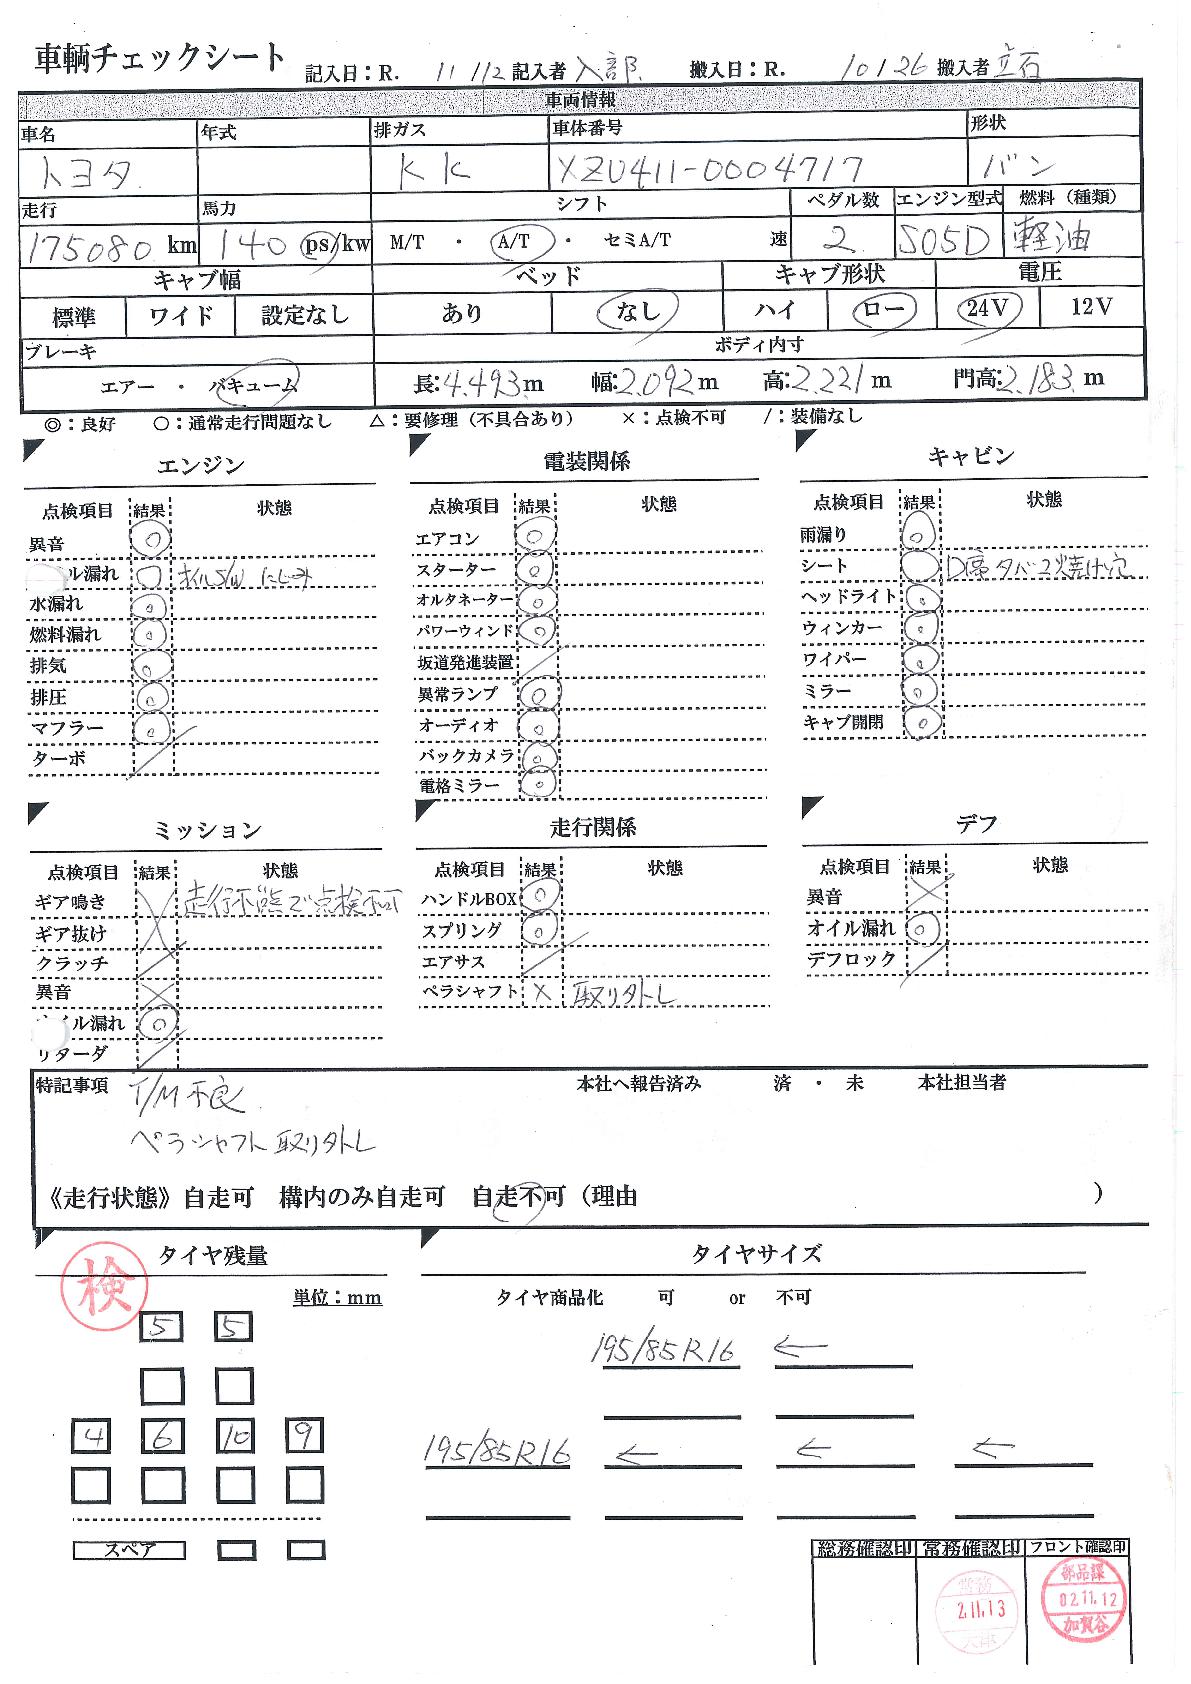 車輌チェックシート 記入日：R. 11/12 記入者 入部 搬入日：R. 10/26 搬入者 立石
車両情報
車名 年式 排ガス 車体番号 形状
トヨタ KK XZU411-0004717 バン
走行 馬力 シフト ペダル数 エンジン型式 燃料（種類）
175080 km 140 ps/kw M/T ・ A/T ・ セミA/T 速 2 S05D 軽油
キャブ幅 ベッド キャブ形状 電圧
標準 ワイド 設定なし あり なし ハイ ロー 24V 12V
ブレーキ ボディ内寸
エアー ・ バキューム 長:4.493m 幅:2.092m 高:2.221m 門高:2.183m
◎：良好 ○：通常走行問題なし △：要修理（不具合あり） ×：点検不可 /：装備なし
エンジン
点検項目 結果 状態
異音 ◎
ル漏れ ○ オイルS/W にじみ
水漏れ ◎
燃料漏れ ◎
排気 ◎
排圧 ◎
マフラー ◎
ターボ /
電装関係
点検項目 結果 状態
エアコン ◎
スターター ◎
オルタネーター ◎
パワーウィンド ◎
坂道発進装置 /
異常ランプ ◎
オーディオ ◎
バックカメラ ◎
電格ミラー ◎
キャビン
点検項目 結果 状態
雨漏り ◎
シート ○ D席タバコ焼け穴
ヘッドライト ◎
ウィンカー ◎
ワイパー ◎
ミラー ◎
キャブ開閉 ◎
ミッション
点検項目 結果 状態
ギア鳴き × 走行不能で点検不可
ギア抜け
クラッチ /
異音 ×
イル漏れ ◎
リターダ /
走行関係
点検項目 結果 状態
ハンドルBOX ◎
スプリング ◎
エアサス /
ペラシャフト × 取り外し
デフ
点検項目 結果 状態
異音 ×
オイル漏れ ◎
デフロック /
特記事項 T/M不良 本社へ報告済み 済 ・ 未 本社担当者
ペラシャフト取り外し
《走行状態》自走可 構内のみ自走可 自走不可（理由 ）
タイヤ残量
検
単位：mm
5 5
4 6 10 9
スペア
タイヤサイズ
タイヤ商品化 可 or 不可
195/85R16 ←
195/85R16 ← ← ←
総務確認印 常務確認印 フロント確認印
常務 2.11.13
部品課 02.11.12 加賀谷